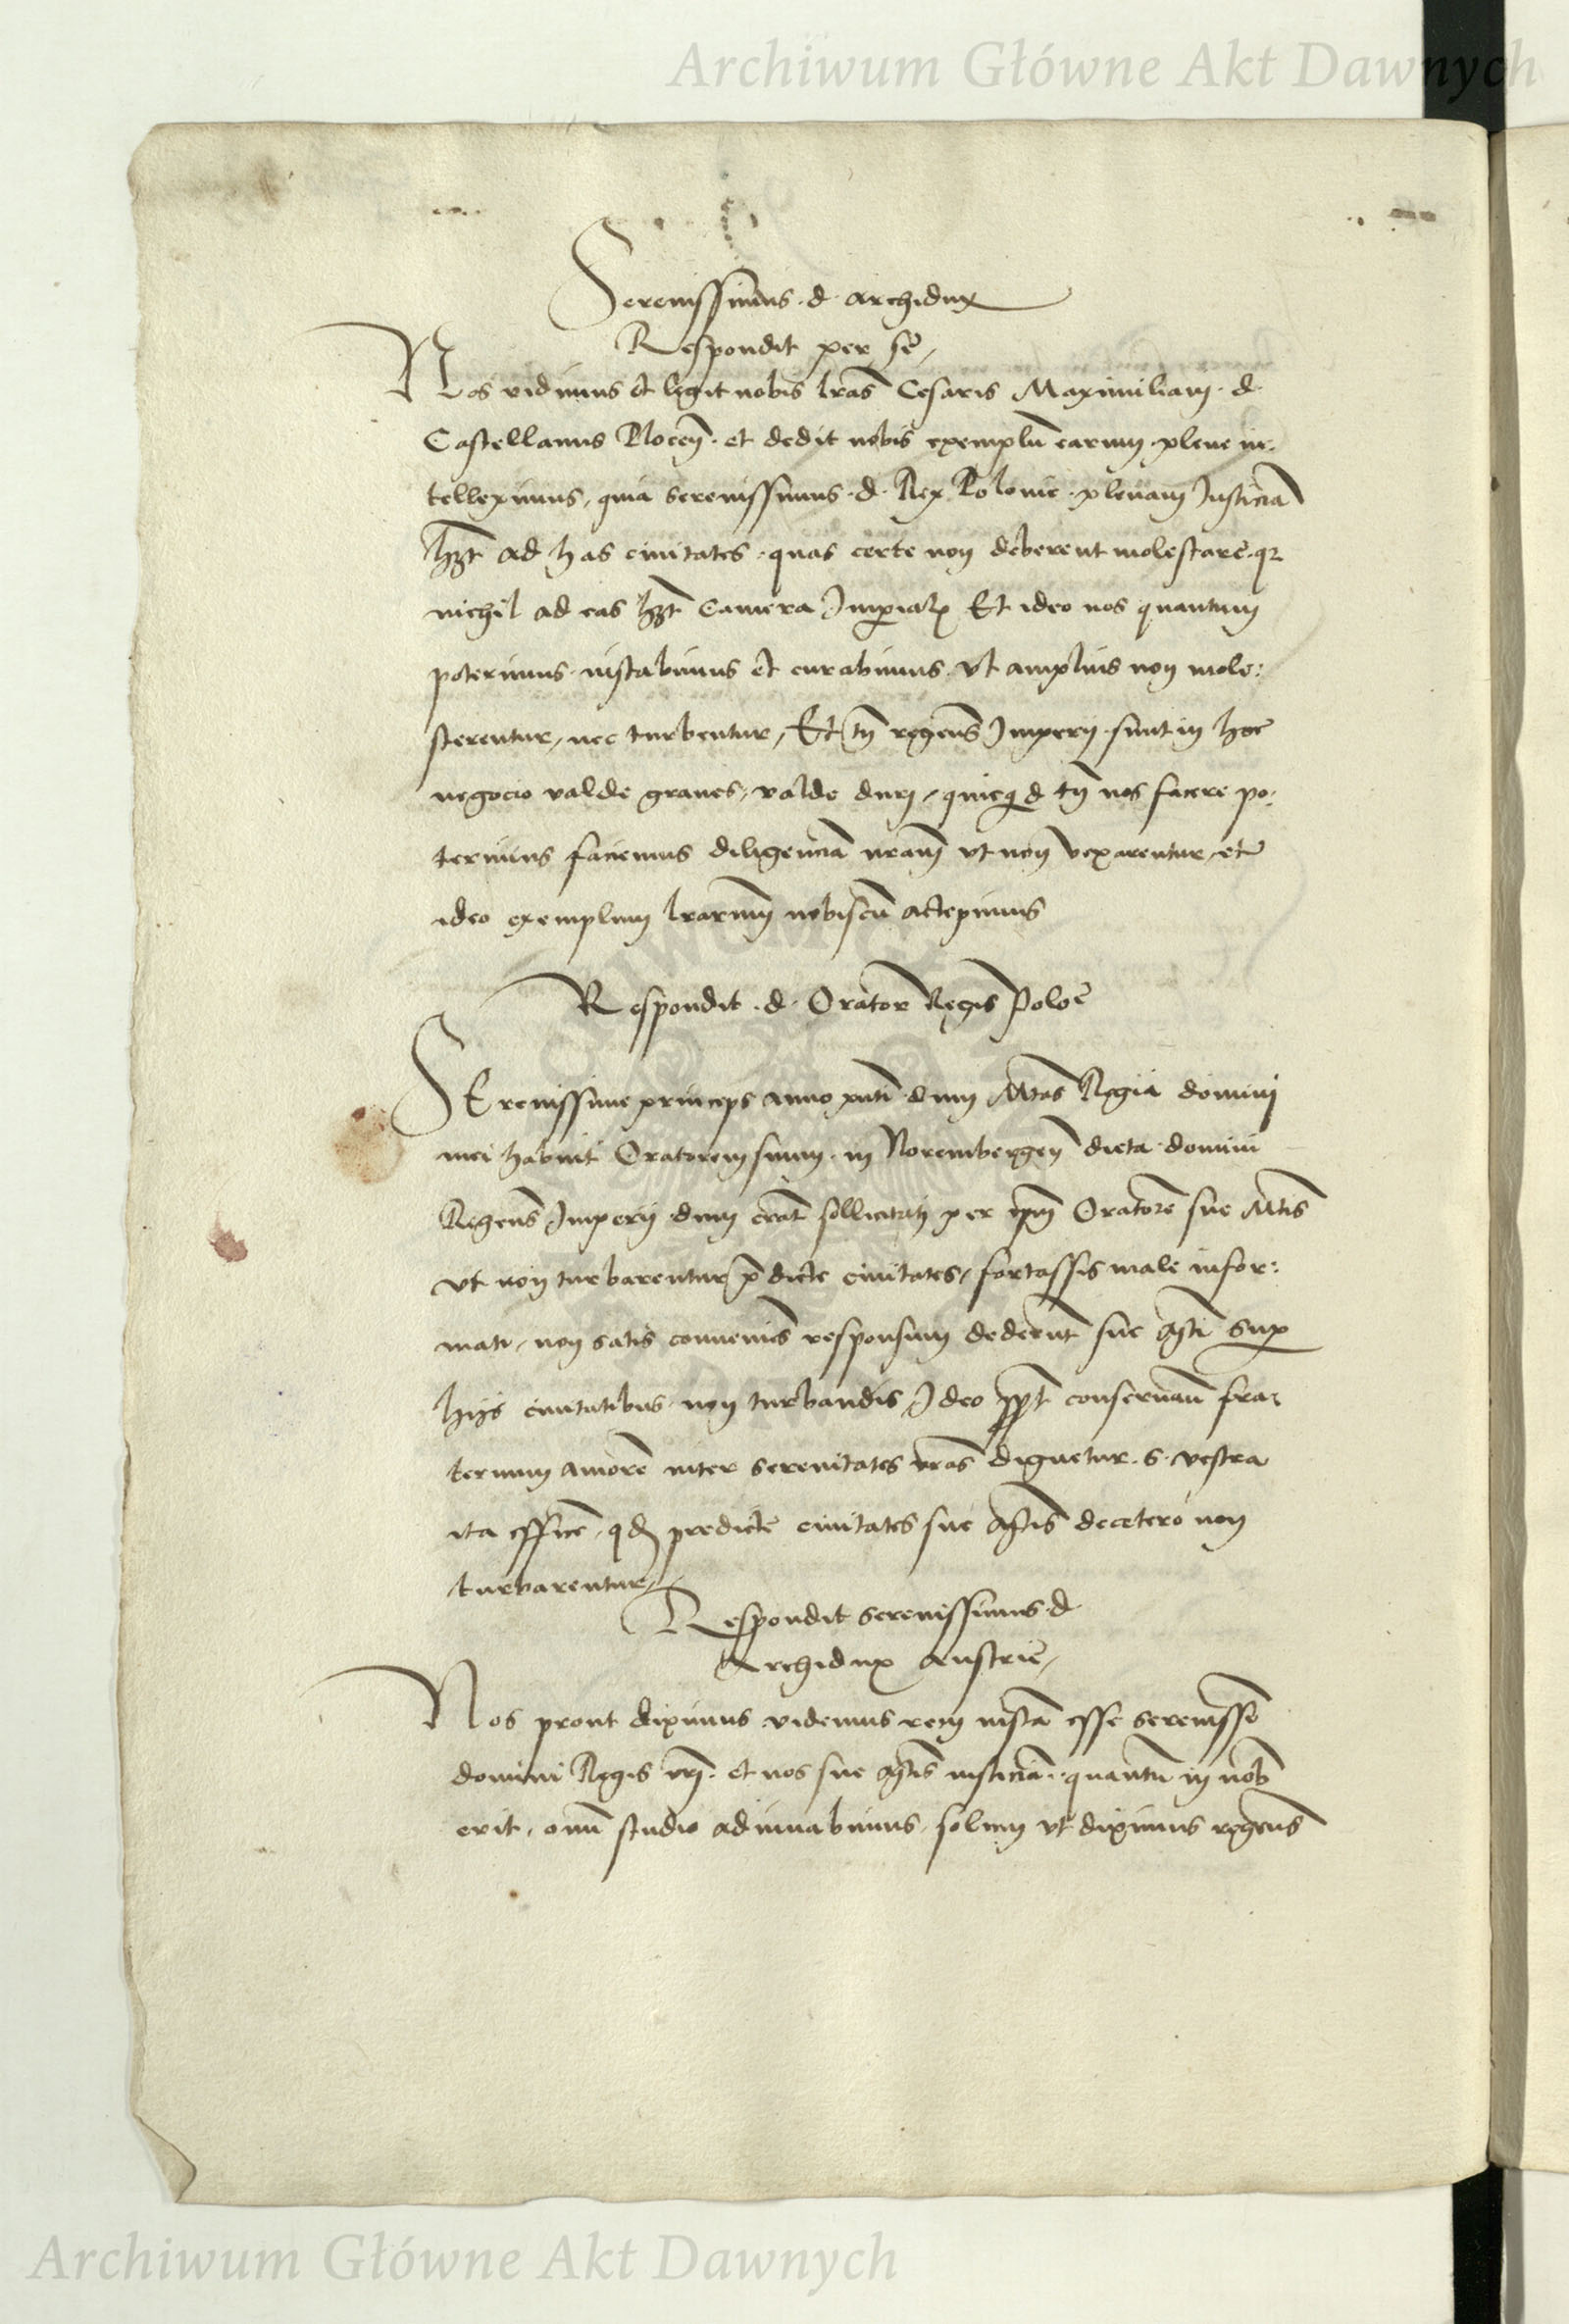 Archiwum Główne Akt Dawnych
Serenissimus · d · archidux
Respondit per se,
Nos vidimus et legit nobis lras Cesaris Maximiliani · d ·
Castellanus · et dedit nobis exemplu earum · plene in:
telleximus, quia serenissimus · d · Rex Polonie · plenam Justicia
hzt ad has ciuitates · quas certe non deberent molestare · qr
nichil ad eas hzt Camera Imperialis Et ideo nos quantum
poterimus · instabimus et curabimus · vt amplius non mole:
sterentur, nec turbentur, Et tn regens Imperij · sunt in hoc
negocio valde graues, valde duri, quicqd tn nos facere po:
terimus faciemus diligencia nram vt non vexarentur, et
ideo exemplum lrarum nobiscu accepimus
Respondit · d · Orator Regis Poloe
SErenissime princeps anno pnti dum Mtas Regia domini
mei habuit Oratorem suum · in Norembergen dieta · domini
Regens Imperij dum erat sollicitati per ipm Oratore sue Mtis
vt non turbarentur pdicte ciuitates, fortassis male infor:
mati, non satis conueniens responsum dederut sue Mti sup
hijs ciuitatibus · non turbandis, Ideo ppt conseruan fra:
ternum amore inter serenitates vras dignetur · S · vestra
ita efficere, qd predicte ciuitates sue Mtis decetero non
turbarentur,
Respondit serenissimus · d
Archidux Austrie,
Nos prout diximus videmus rem iusta esse serenisse
domini Regis vri · et nos sue Mtis iusticia · quantu in nob
erit, omi studio adiuuabimus, solum vt diximus regens
Archiwum Główne Akt Dawnych